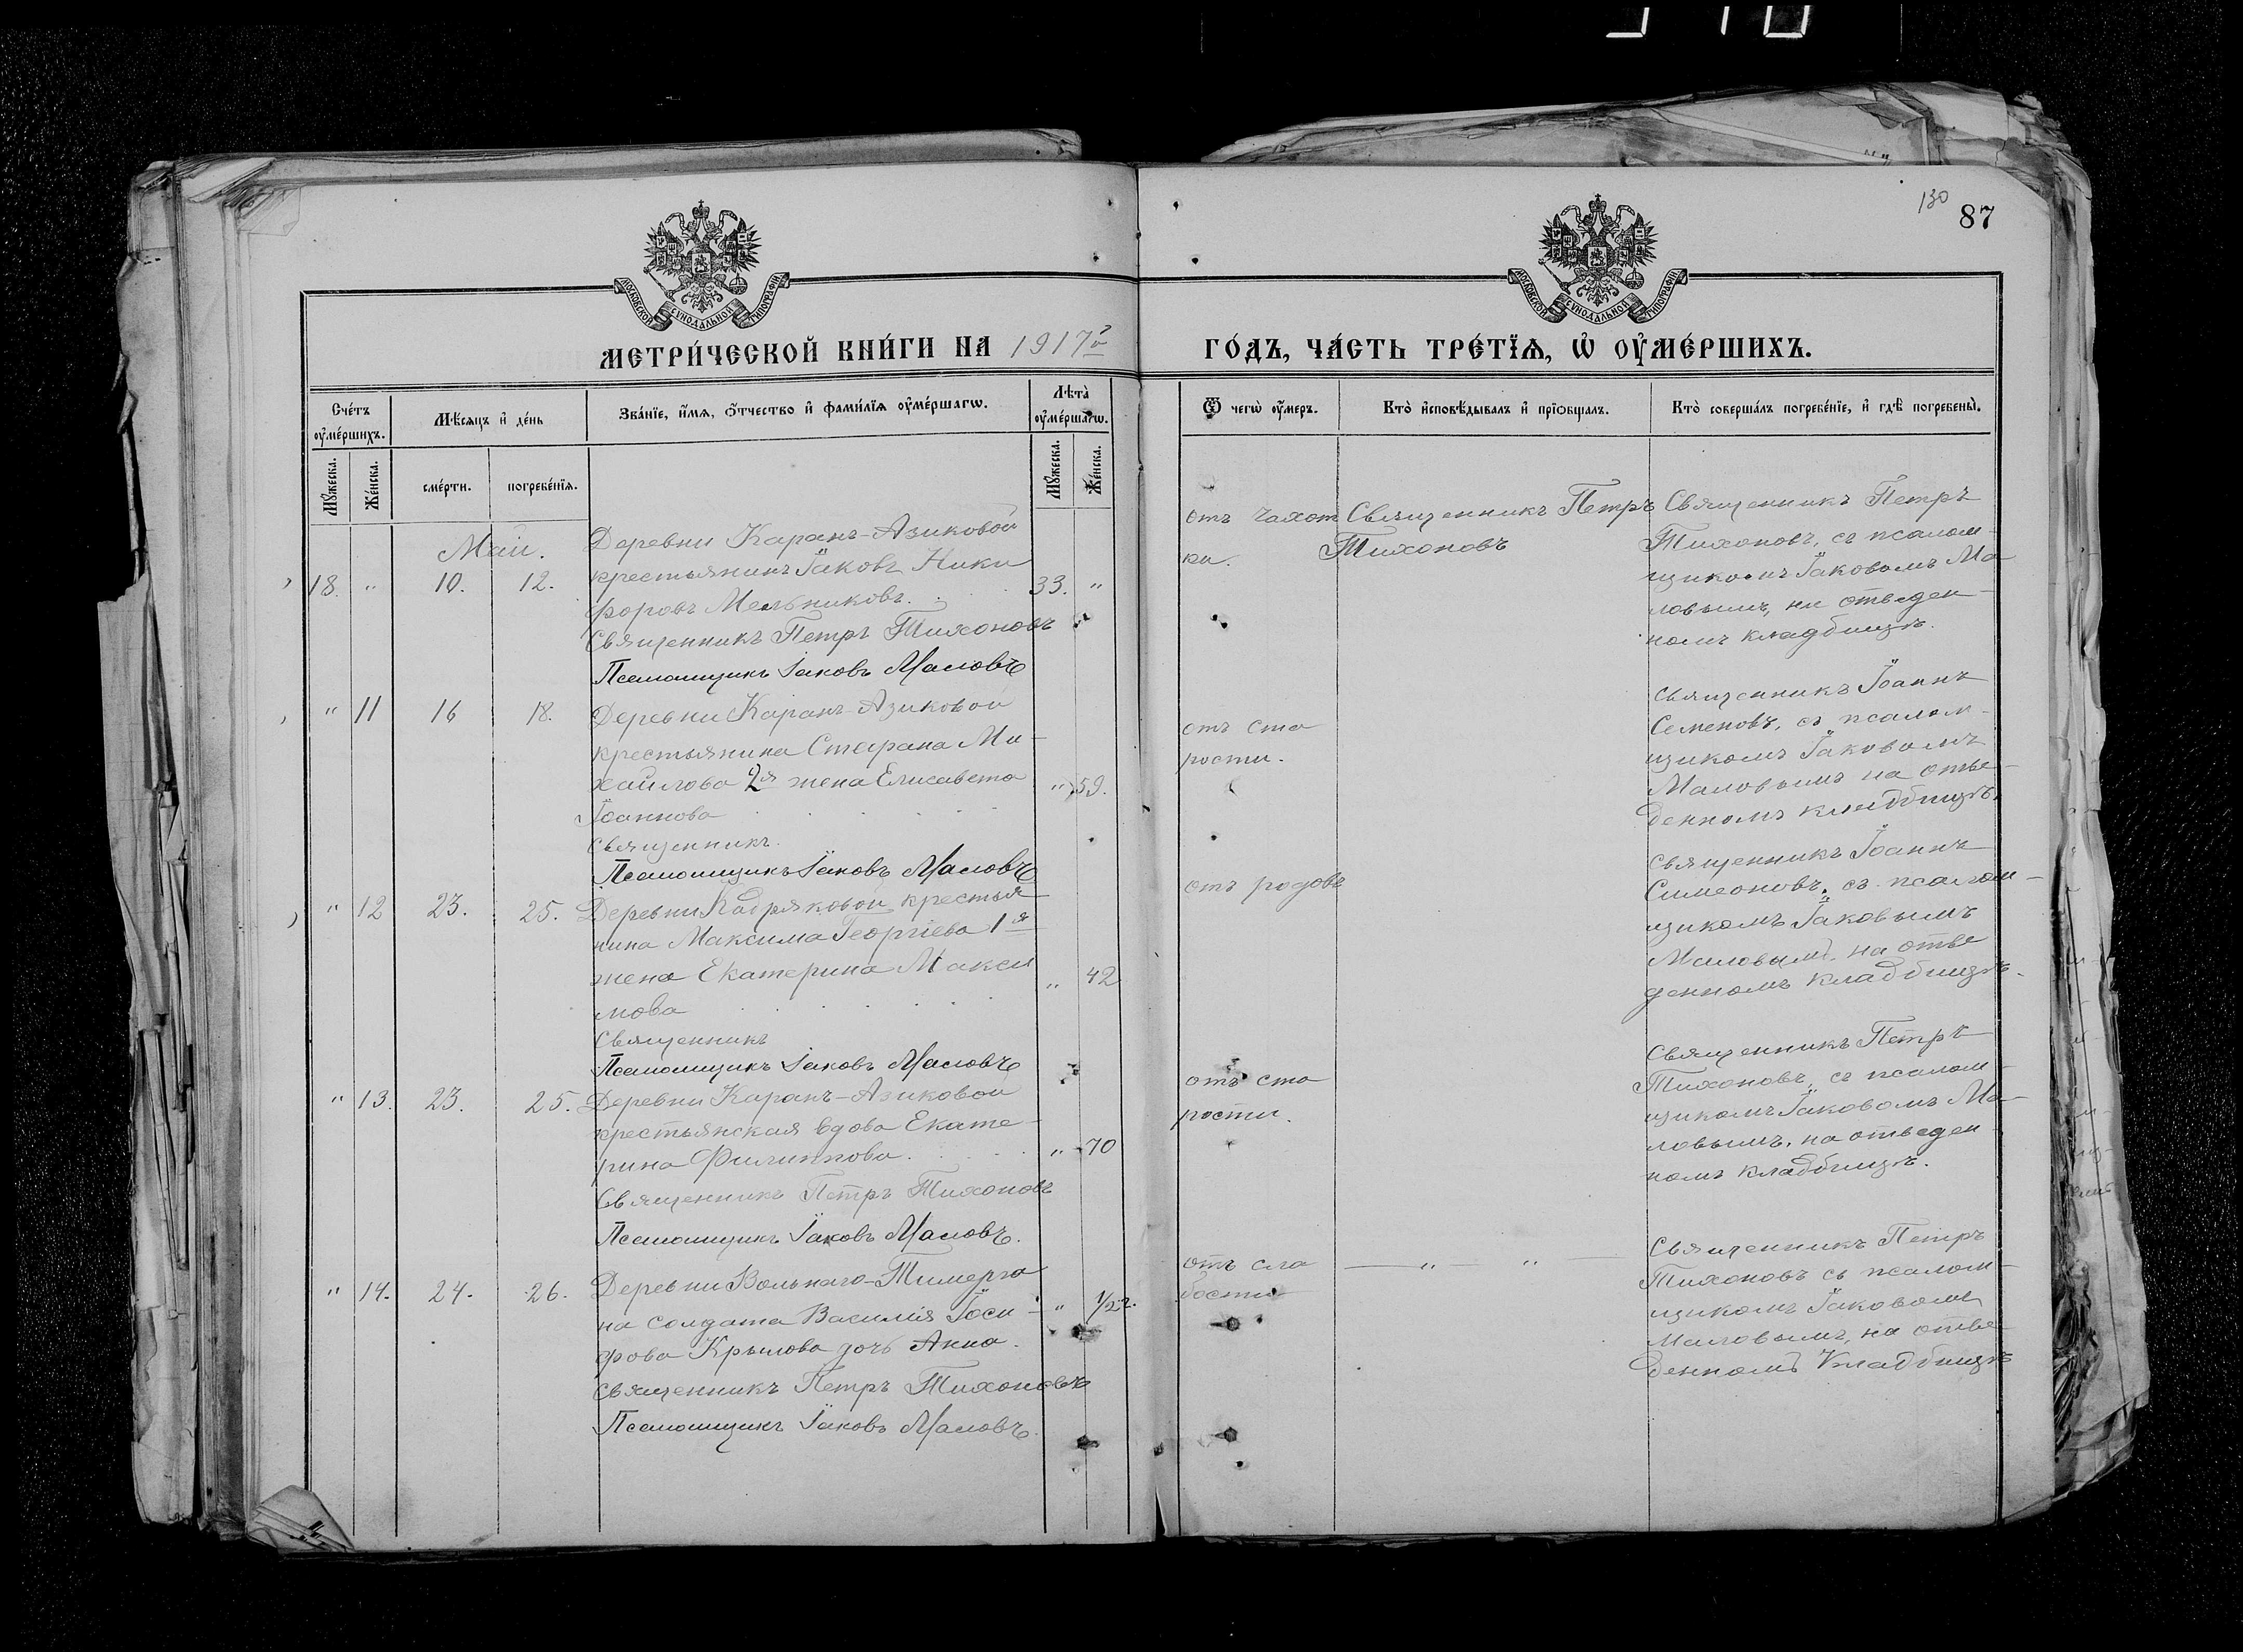 130
87
МОСКОВСКОЙ СУНОДАЛЬНОЙ ТИПОГРАФІИ
МОСКОВСКОЙ СУНОДАЛЬНОЙ ТИПОГРАФІИ
МЕТРИ́ЧЕСКОЙ КНИ́ГИ НА 1917 г
ГО́ДЪ, ЧА́СТЬ ТРЕ́ТЇѦ, Ѡ҆ ОУ҆МЕ́РШИХЪ.
Сче́тъ оу҆ме́ршихъ.
Мꙋ́жеска.
Же́нска.
Мѣ́сѧцъ и҆ де́нь
сме́рти.
погребе́нїѧ.
Зва́нїе, и҆́мѧ, ѻ҆́тчество и҆ фами́лїѧ оу҆ме́ршагѡ.
Лѣ̀та̀ оу҆ме́ршагѡ.
Мꙋ́жеска.
Же́нска.
Ѿ чегѡ̀ оу҆́меръ.
Кто̀ и҆сповѣ́дывалъ и҆ прїѡбща́лъ.
Кто̀ соверша́лъ погребе́нїе, и҆ гдѣ̀ погребены̀.
Май.
18. " 10. 12.
Деревни Каранъ-Азиковой
крестьянинъ Іаковъ Ники
форовъ Мельниковъ.
33. "
Священникъ Петръ Тихоновъ
Псаломщикъ Іаковъ Маловъ
отъ чахот
ки.
Священникъ Петръ
Тихоновъ
Священникъ Петръ
Тихоновъ, съ псалом-
щикомъ Іаковомъ Ма
ловымъ, на отведен-
номъ кладбищѣ.
" 11 16 18.
Деревни Каранъ-Азиковой
крестьянина Стефана Ми-
хайлова 2я жена Елисавета
Іоаннова
" 59.
Священникъ
Псаломщикъ Іаковъ Маловъ
отъ ста
рости.
Священникъ Іоаннъ
Семеновъ, съ псалом-
щикомъ Іаковомъ
Маловымъ на отве-
денномъ кладбищѣ.
" 12 23. 25.
Деревни Кадряковой крестья
нина Максима Георгіева 1я
жена Екатерина Макси
мова
" 42
Священникъ
Псаломщикъ Іаковъ Маловъ
отъ родовъ
Священникъ Іоаннъ
Симеоновъ, съ псалом-
щикомъ Іаковымъ
Маловымъ, на отве
денномъ кладбищѣ.
" 13. 23. 25.
Деревни Каранъ-Азиковой
крестьянская вдова Екате-
рина Филиппова.
" 70
Священникъ Петръ Тихоновъ
Псаломщикъ Іаковъ Маловъ.
отъ ста
рости.
Священникъ Петръ
Тихоновъ, съ псалом-
щикомъ Іаковомъ Ма-
ловымъ, на отведен-
номъ кладбищѣ.
" 14. 24. 26.
Деревни Вольнаго-Тимерга
на солдата Василія Іоси-
фова Крылова дочь Анна.
" 1/2 г.
Священникъ Петръ Тихоновъ
Псаломщикъ Іаковъ Маловъ.
отъ сла
бости
— " — "
Священникъ Петръ
Тихоновъ съ псалом-
щикомъ Іаковомъ
Маловымъ, на отве-
денномъ кладбищѣ